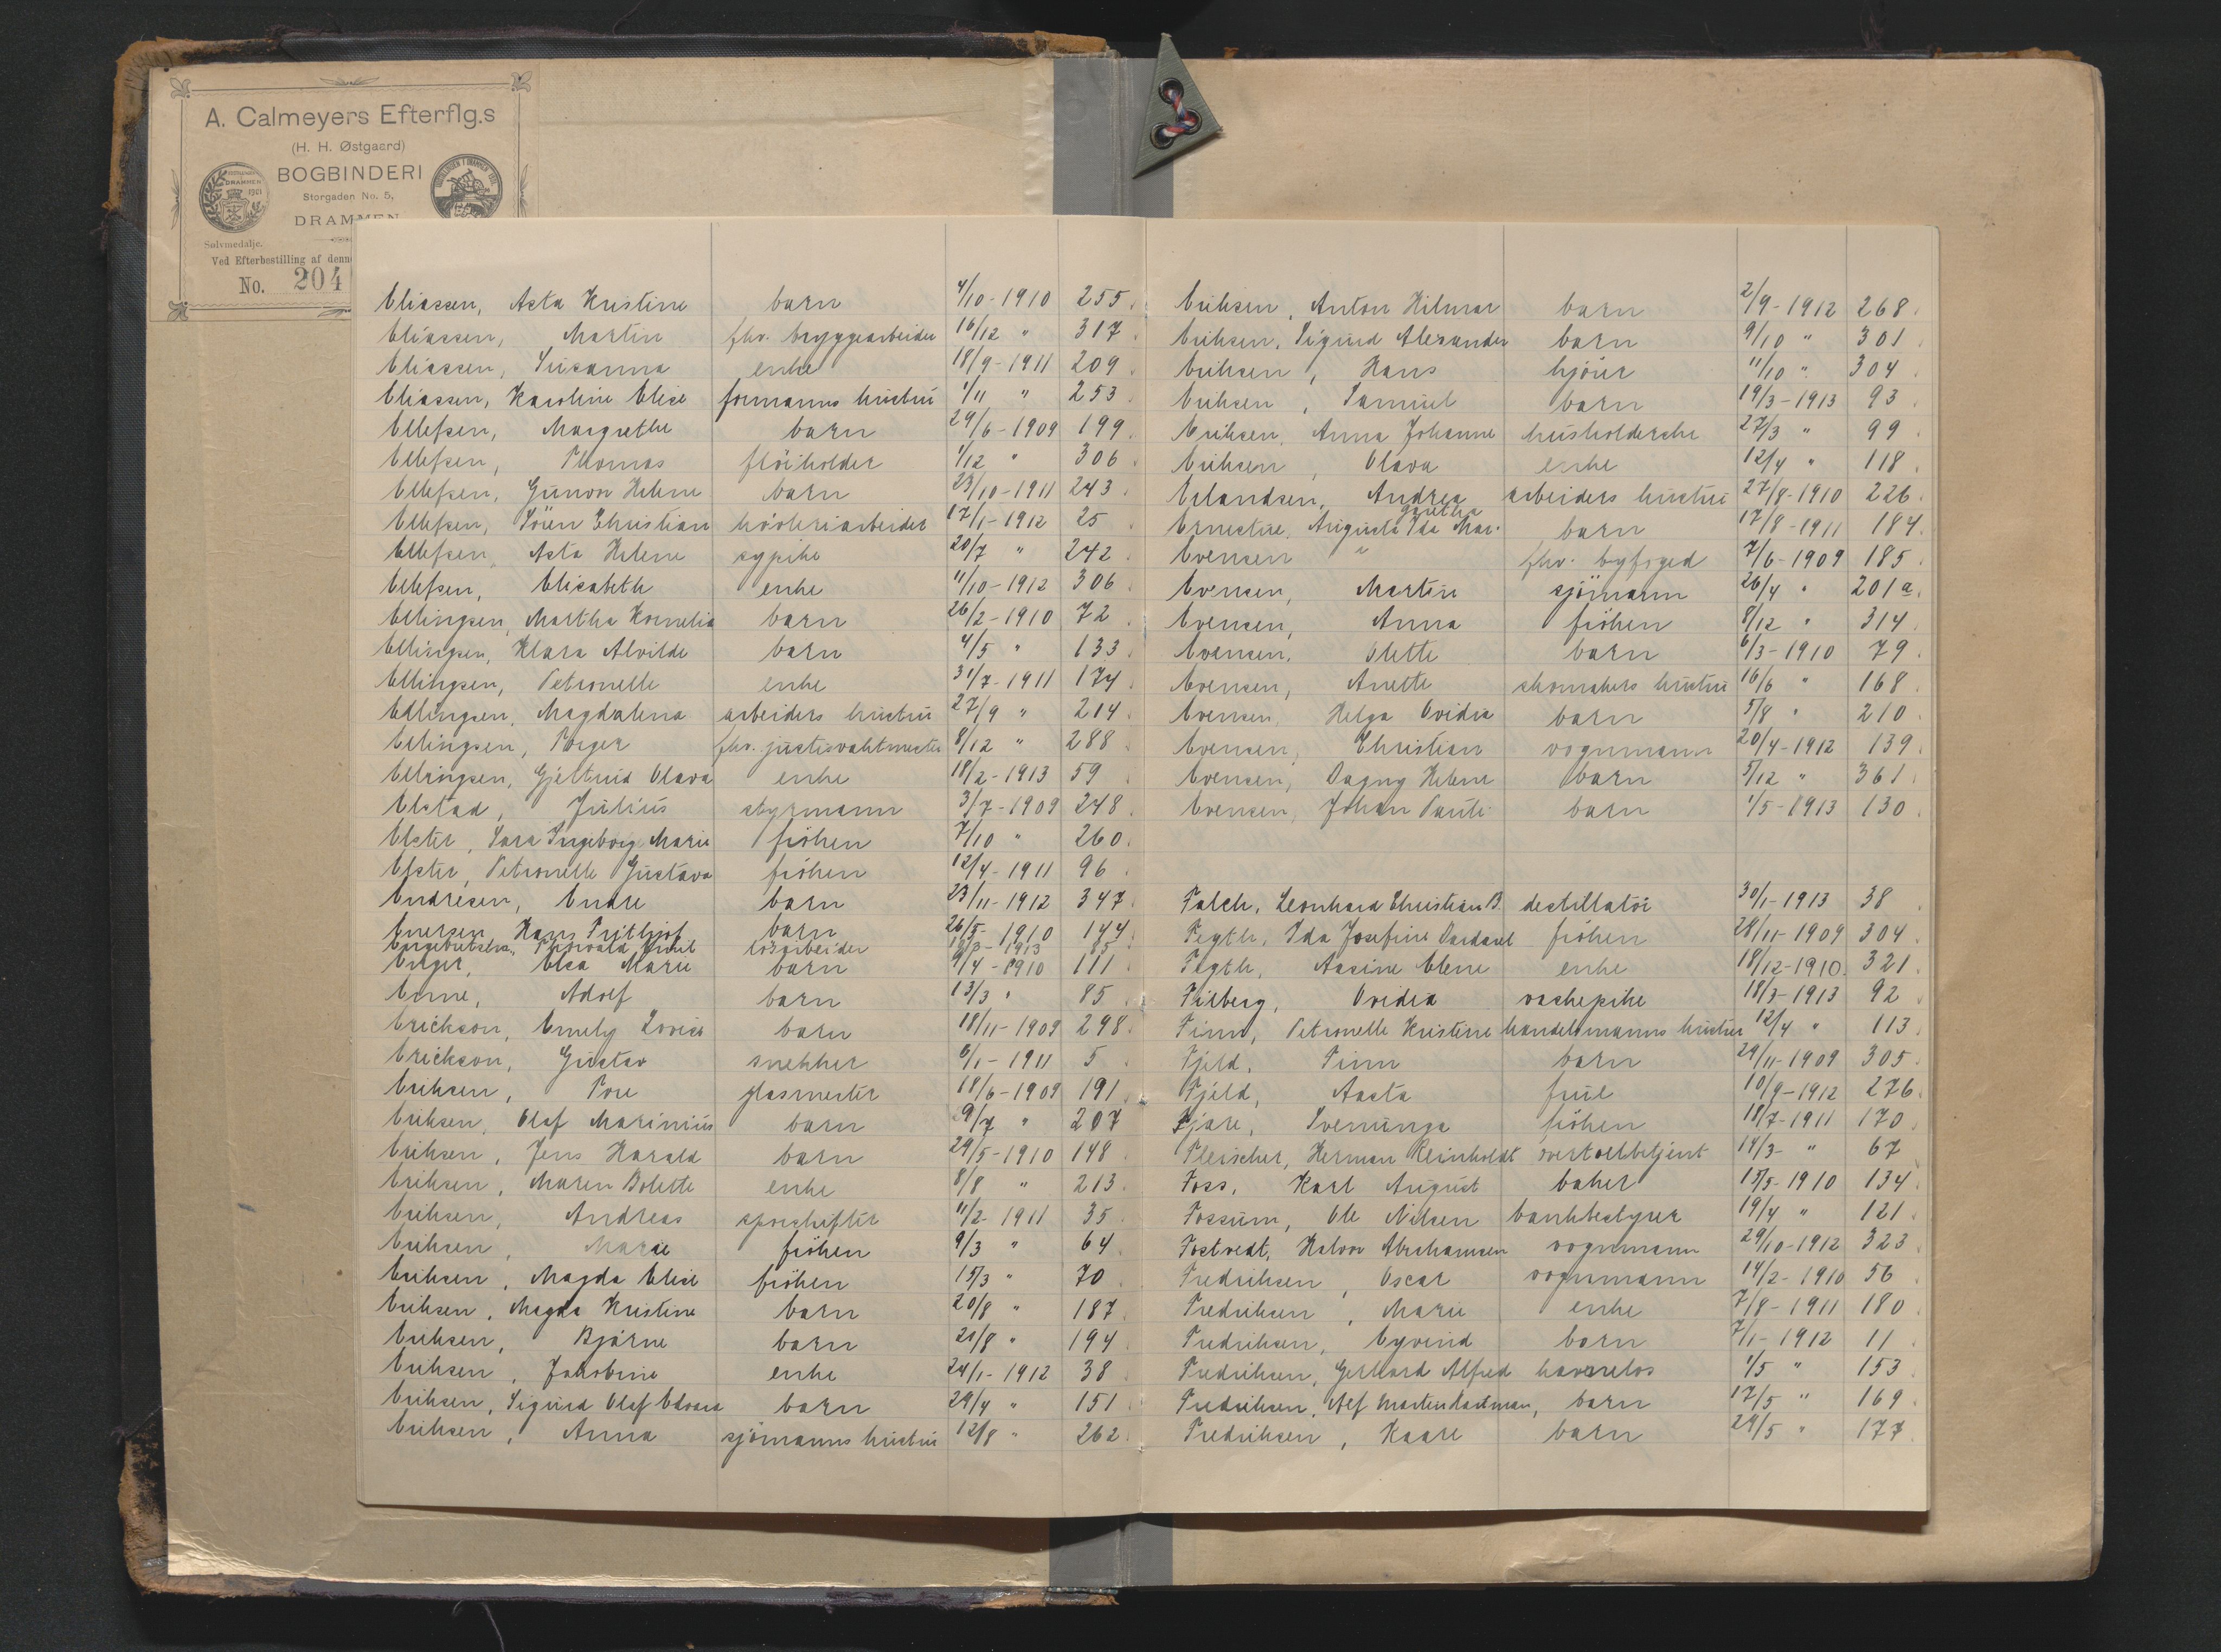 A. Calmeyers Efterflg.s
(H. H. Østgaard)
BOGBINDERI
Storgaden No. 5,
DRAMMEN
Sølvmedalje.
Ved Efterbestilling af denn
No. 204
Eliassen, Asta Kristine barn 4/10-1910 255.
Eliassen, Martin fhv. bryggearbeider 16/12 " 317.
Eliassen, Susanna enke 18/9-1911 209.
Eliassen, Karoline Elise formanns hustru 1/11 " 253.
Ellefsen, Margrethe barn 29/6-1909 199.
Ellefsen, Thomas flöiholder 1/12 " 306.
Ellefsen, Gunvor Helene barn 23/10-1911 243.
Ellefsen, Sören Christian hövleriarbeider 17/1-1912 25.
Ellefsen, Asta Helene sypike 20/7 " 242.
Ellefsen, Elisabeth enke 11/10-1912 306.
Ellingsen, Martha Kornelia barn 26/2-1910 72.
Ellingsen, Klara Alvilde barn 4/5 " 133.
Ellingsen, Petronelle enke 31/7-1911 174.
Ellingsen, Magdalena arbeiders hustru 27/9 " 214.
Ellingsen, Torger fhv. justisvaktmester 8/12 " 288.
Ellingsen, Gjertrud Olava enke 18/2-1913 59.
Elstad, Julius styrmann 3/7-1909 248.
Elster, Sara Ingeborg Marie fröken 7/10 " 260.
Elster, Petronelle Gustava fröken 12/4-1911 96.
Endresen, Endre barn 23/11-1912 347.
Enersen, Hans Frithjof barn 26/5-1910 144.
Engebretsen, Thorvald Emil lösarbeider 12/3-1913 85.
Enger, Elsa Marie barn 9/4-1910 111.
Enne, Adolf barn 13/3 " 85.
Erickson, Emely Lovise barn 18/11-1909 298.
Erickson, Gustav snekker 6/1-1911 5.
Eriksen, Tore glasmester 18/6-1909 191.
Eriksen, Olaf Marinius barn 9/7 " 207
Eriksen, Jens Harald barn 29/5-1910 148.
Eriksen, Maren Bolette enke 8/8 " 213.
Eriksen, Andreas sporskifter 11/2-1911 35.
Eriksen, Marie fröken 9/3 " 64.
Eriksen, Magda Elise fröken 15/3 " 70.
Eriksen, Magda Kristine barn 20/8 " 187.
Eriksen, Bjarne barn 28/8 " 194.
Eriksen, Jakobine enke 24/1-1912 38.
Eriksen, Sigurd Olaf Edvard barn 29/4 " 151.
Eriksen, Anna sjömanns hustru 12/8 " 262.
Eriksen, Anton Hilmar barn 2/9-1912 268.
Eriksen, Sigurd Alexander barn 9/10 " 301.
Eriksen, Hans kjörer 11/10 " 304.
Eriksen, Samuel barn 19/3-1913 93.
Eriksen, Anna Johanne husholderske 27/3 " 99.
Eriksen, Olava enke 12/4 " 118.
Erlandsen, Andrea arbeiders hustru 27/8-1910 226.
Ernestine, Augusta Ida Margretha barn 17/8-1911 184.
Evensen " fhv. byfoged 7/6-1909 185.
Evensen, Martin sjömann 26/4 " 201a.
Evensen, Anna fröken 8/12 " 314.
Evensen, Olette barn 6/3-1910 79.
Evensen, Anette skomakers hustru 16/6 " 168.
Evensen, Helga Ovidia barn 5/8 " 210.
Evensen, Christian vognmann 20/4-1912 139.
Evensen, Dagny Helene barn 5/12 " 361.
Evensen, Johan Pauli barn 1/5-1913 130.
Falch, Leonhard Christian B. destillatör 30/1-1913 38.
Fegth, Ida Josefine Pardavel fröken 28/11-1909 304.
Fegth, Aasine Elene enke 18/12-1910. 321.
Filberg, Ovidia vaskepike 18/3-1913 92.
Finn, Petronelle Kristine handelsmanns hustru 12/4 " 113.
Fjeld, Finn barn 29/11-1909 305.
Fjeld, Aasta frue 10/9-1912 276.
Fjære, Svenunga fröken 18/7-1911 170.
Fleischer, Herman Reinholdt overtollbetjent 14/3- " 67
Foss, Karl August baker 15/5-1910 134.
Fossum, Ole Nilsen bankbestyrer 19/4 " 121.
Fostvedt, Halvor Abrahamsen vognmann 29/10-1912 323.
Fredriksen, Oscar vognmann 14/2-1910 56.
Fredriksen, Marie enke 7/8-1911 180.
Fredriksen, Eyvind barn 7/1-1912 11.
Fredriksen, Gerhard Alfred havnelos 1/5 " 153.
Fredriksen, Alf Morten Hartman, barn 17/5 " 169.
Fredriksen, Kaare barn 24/5 " 177.